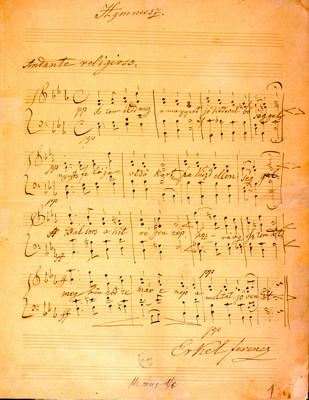 Hymnusz.
Andante religioso.
pp Is ten áld meg a magyart jó kedvvel bő séggel
pp
nyújts fe lé je védő kart ha küzd ellen ség gel
pp
ff Bal sors a kit ré gen tép hoz
ff
ppp
meg bün höd te már e nép a multat s jö vendőt
ff
ppp
Erkel Ferencz